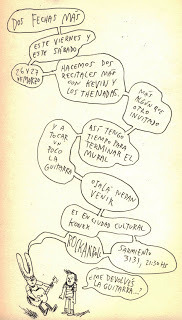 DOS FECHAS MÁS
ESTE VIERNES Y
ESTE SÁBADO
26 Y 27
DE MARZO
HACEMOS DOS
RECITALES MÁS
CON KEVIN Y
LOS THENADAS.
MÁS
ALGÚN QUE
OTRO
INVITADO
ASÍ TENGO
TIEMPO PARA
TERMINAR EL
MURAL
Y A
TOCAR UN
POCO
LA
GUITARRA
OJALÁ PUEDAN
VENIR
ES EN CIUDAD CULTURAL
KONEX
SARMIENTO
3131, 21:30 HS
¿ME DEVOLVÉS
LA GUITARRA...?